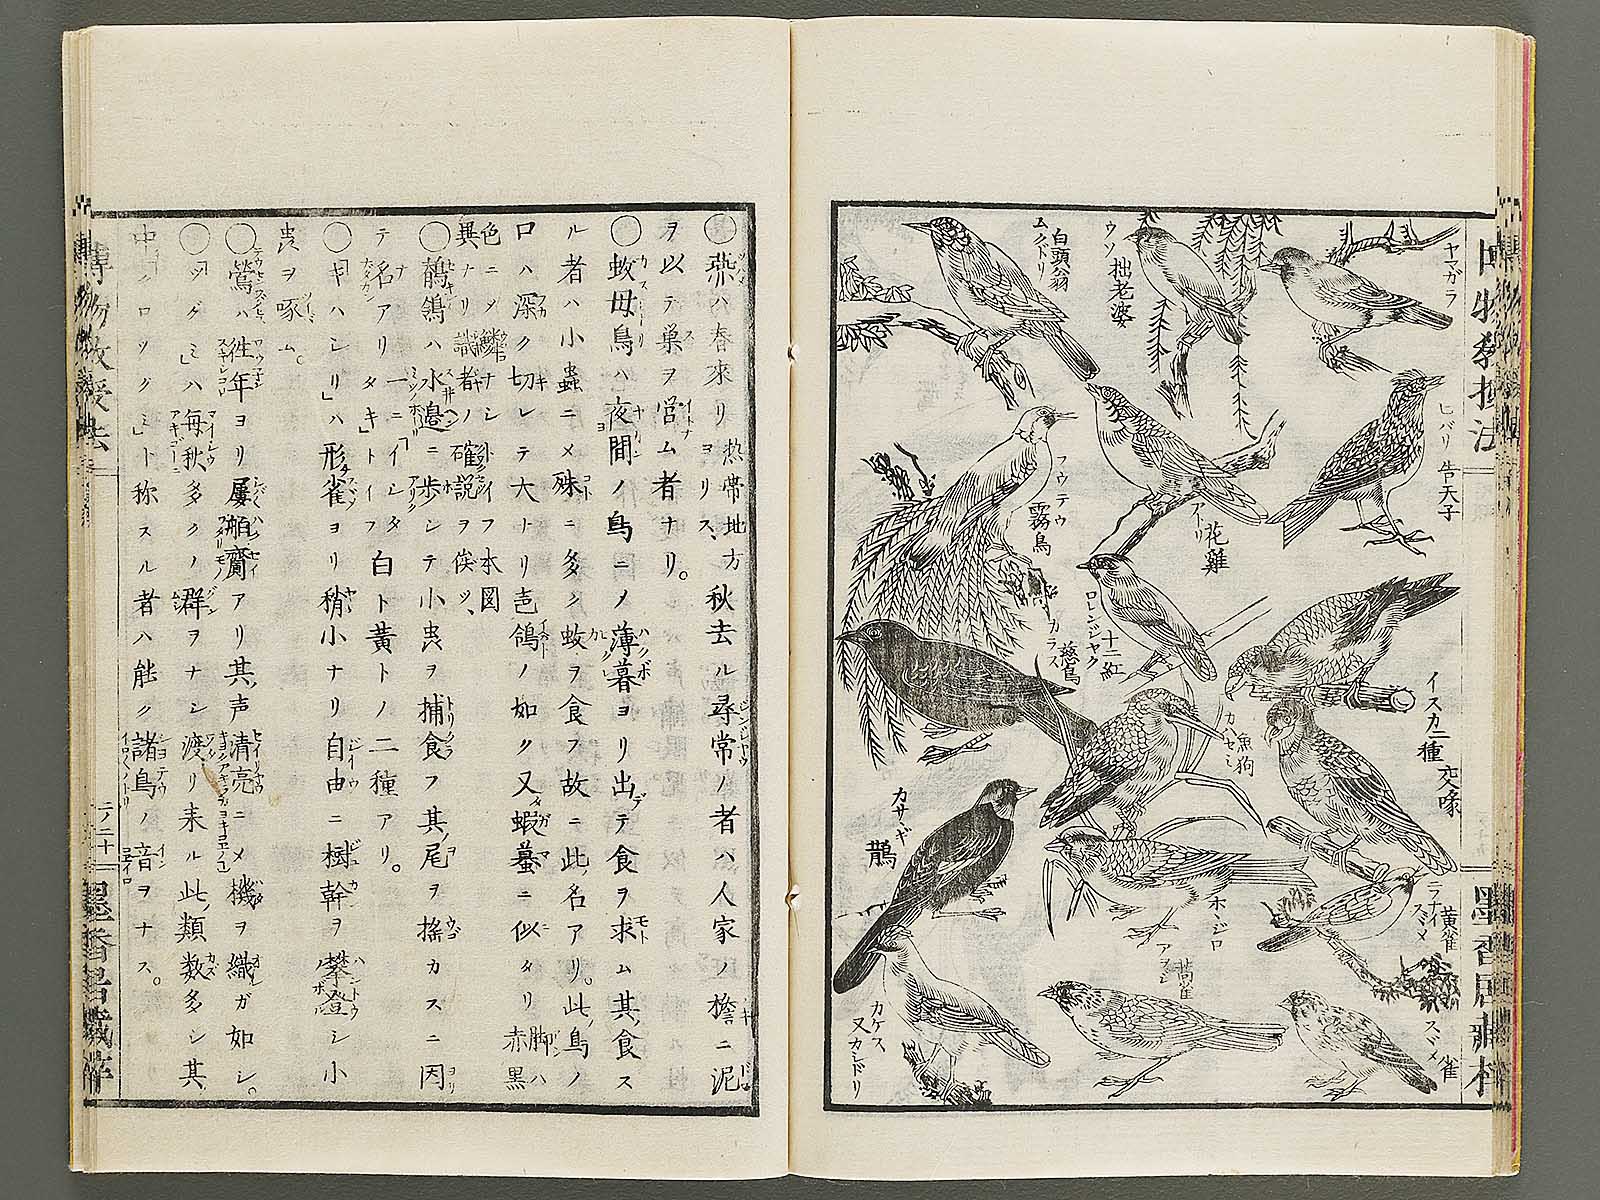 ヤマガラ
ウソ 拙老婆
白頭翁
ムクトリ
ヒバリ 告天子
花雞
アトリ
フウテウ
霧鳥
十二紅
ロレンジヤク
慈烏
カラス
イスカ二種 交喙
魚狗
カハセミ
カサヽギ
鵲
黄雀
ホヽジロ
蒿雀
アヲジ
雀
スヾメ
カケス
又カシドリ
墨香居蔵梓
○燕ハ春來リ 熱帯地方ヨリス、秋去ル尋常ノ者ハ人家ノ檐ニ泥
ヲ以テ巢ヲ営ム者ナリ。
○蚊母鳥ハ夜間ノ鳥ニメ薄暮ヨリ出デ食ヲ求ム其ノ食ス
ル者ハ小蟲ニメ殊ニ多ク蚊ヲ食フ故ニ此ノ名アリ。此ノ鳥ノ
口ハ深ク切レテ大ナリ
鴿ノ如ク又蝦蟇ニ似タリ脚ハ赤黒
色ニメ鱗ナシ
異ナリ識者ノ確説ヲ俟ツ、
○鶺鴒ハ水邉ニ歩シテ小虫ヲ捕食フ其ノ尾ヲ搖カスニ因
テ名アリ一ニ「イシタタキ」トイフ白ト黄トノ二種アリ。
○「キハシリ」ハ形雀ヨリ稍小ナリ自由ニ樹幹ヲ攀登シ小
虫ヲ啄ム。
○鶯ハ徃年ヨリ屢舶齎アリ其ノ声清亮ニメ機ヲ織ガ如シ。
○「ツグミ」ハ毎秋多クノ群ヲナシ渡リ来ル此ノ類数多シ其ノ
中「クロツグミ」ト称スル者ハ能ク諸鳥ノ音ヲナス。
博物教授法
二ノ二十一
墨香居蔵梓